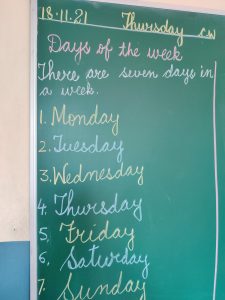 18.11.21 Thursday CW
Days of the week
There are seven days in
a week.
1. Monday
2. Tuesday
3. Wednesday
4. Thursday
5. Friday
6. Saturday
7. Sunday